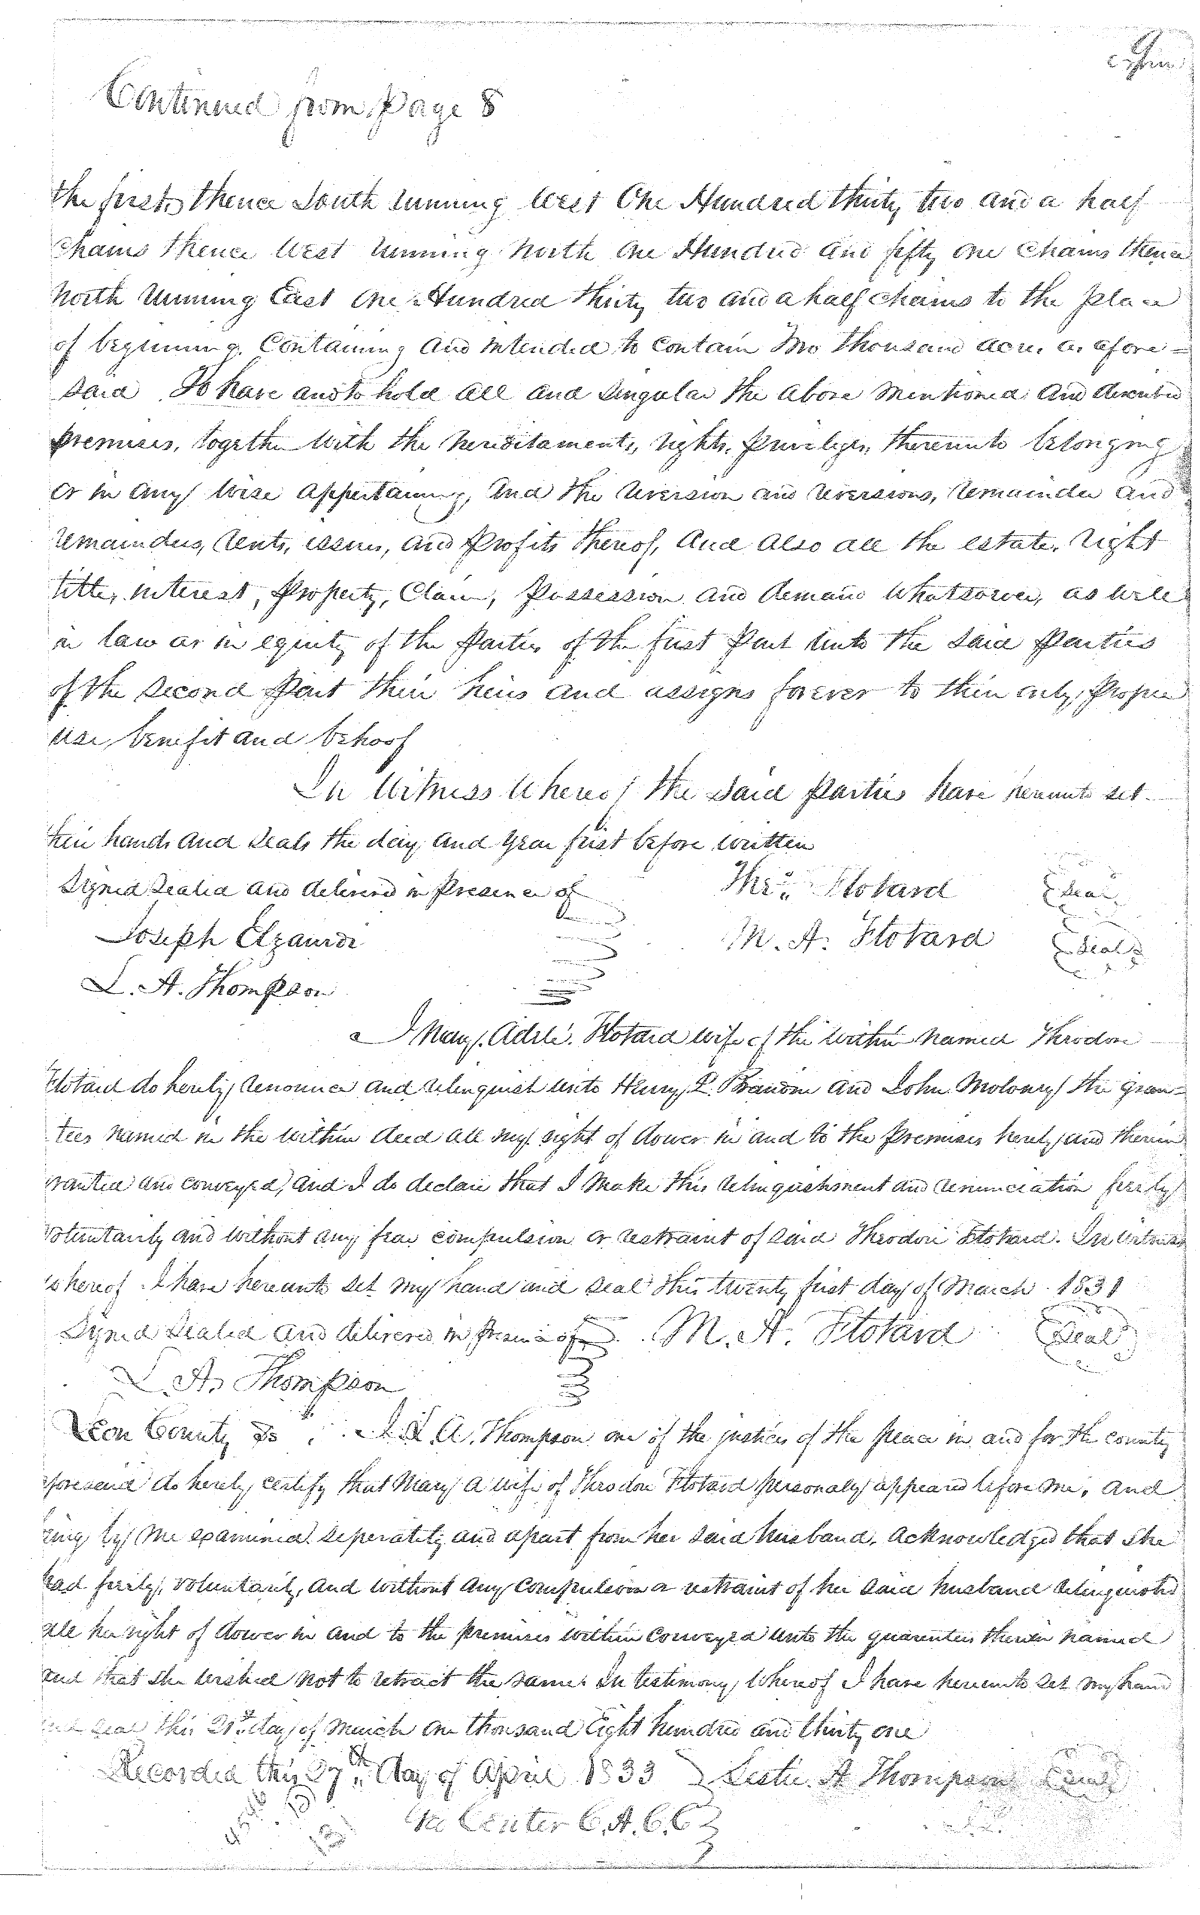 Continued from Page 8
the first, thence South running West One Hundred thirty two and a half
Chains thence West running North one Hundred and fifty one Chains thence
North running East one Hundred thirty two and a half chains to the place
of beginning. Containing and intended to contain Two thousand acres as afore=
said To have and to hold all and singular the above mentioned and described
premises, together with the hereditaments, rights, privileges, thereunto belonging
or in any wise appertaining, and the reversion and reversions, remainder and
remainders, rents, issues, and profits thereof, and also all the estate, right
title, interest, property, Claim, possession and demand whatsoever, as well
in law as in equity of the Parties of the first Part unto the said Parties
of the second Part their heirs and assigns forever to their only, proper
use, benefit and behoof
In Witness Whereof the said parties have hereunto set
their hands and seals the day and year first before written
Signed Sealed and delivered in presence of Theo. Flotard Seal
Joseph M. A. Flotard Seal
L. A. Thompson
I Mary Adele Flotard wife of the within named Theodore
Flotard do hereby renounce and relinquish unto Henry and John Molony the gran=
tees named in the within deed all my right of dower in and to the premises hereby and therein
granted and conveyed, and I do declare that I make this relinquishment and renunciation freely
voluntarily and without any fear compulsion or restraint of said Theodore Flotard. In Witness
whereof I have hereunto set my hand and seal this twenty first day of March 1831
Signed Sealed and delivered in presence of M. A. Flotard Seal
L. A. Thompson
Leon County Ss I L. A. Thompson one of the justices of the peace in and for the county
aforesaid do hereby certify that Mary A wife of Theodore Flotard personally appeared before me, and
being by me examined seperately and apart from her said husband, acknowledged that she
had freely, voluntarily, and without any compulsion or restraint of her said husband relinquished
all her right of dower in and to the premises within conveyed unto the guarentees therein named
and that she wished not to retract the same. In testimony whereof I have hereunto set my hand
and seal this 21st day of March one thousand Eight hundred and thirty one
Recorded this 27th day of April 1833 Leslie A Thompson Seal
Center C. A. C. C